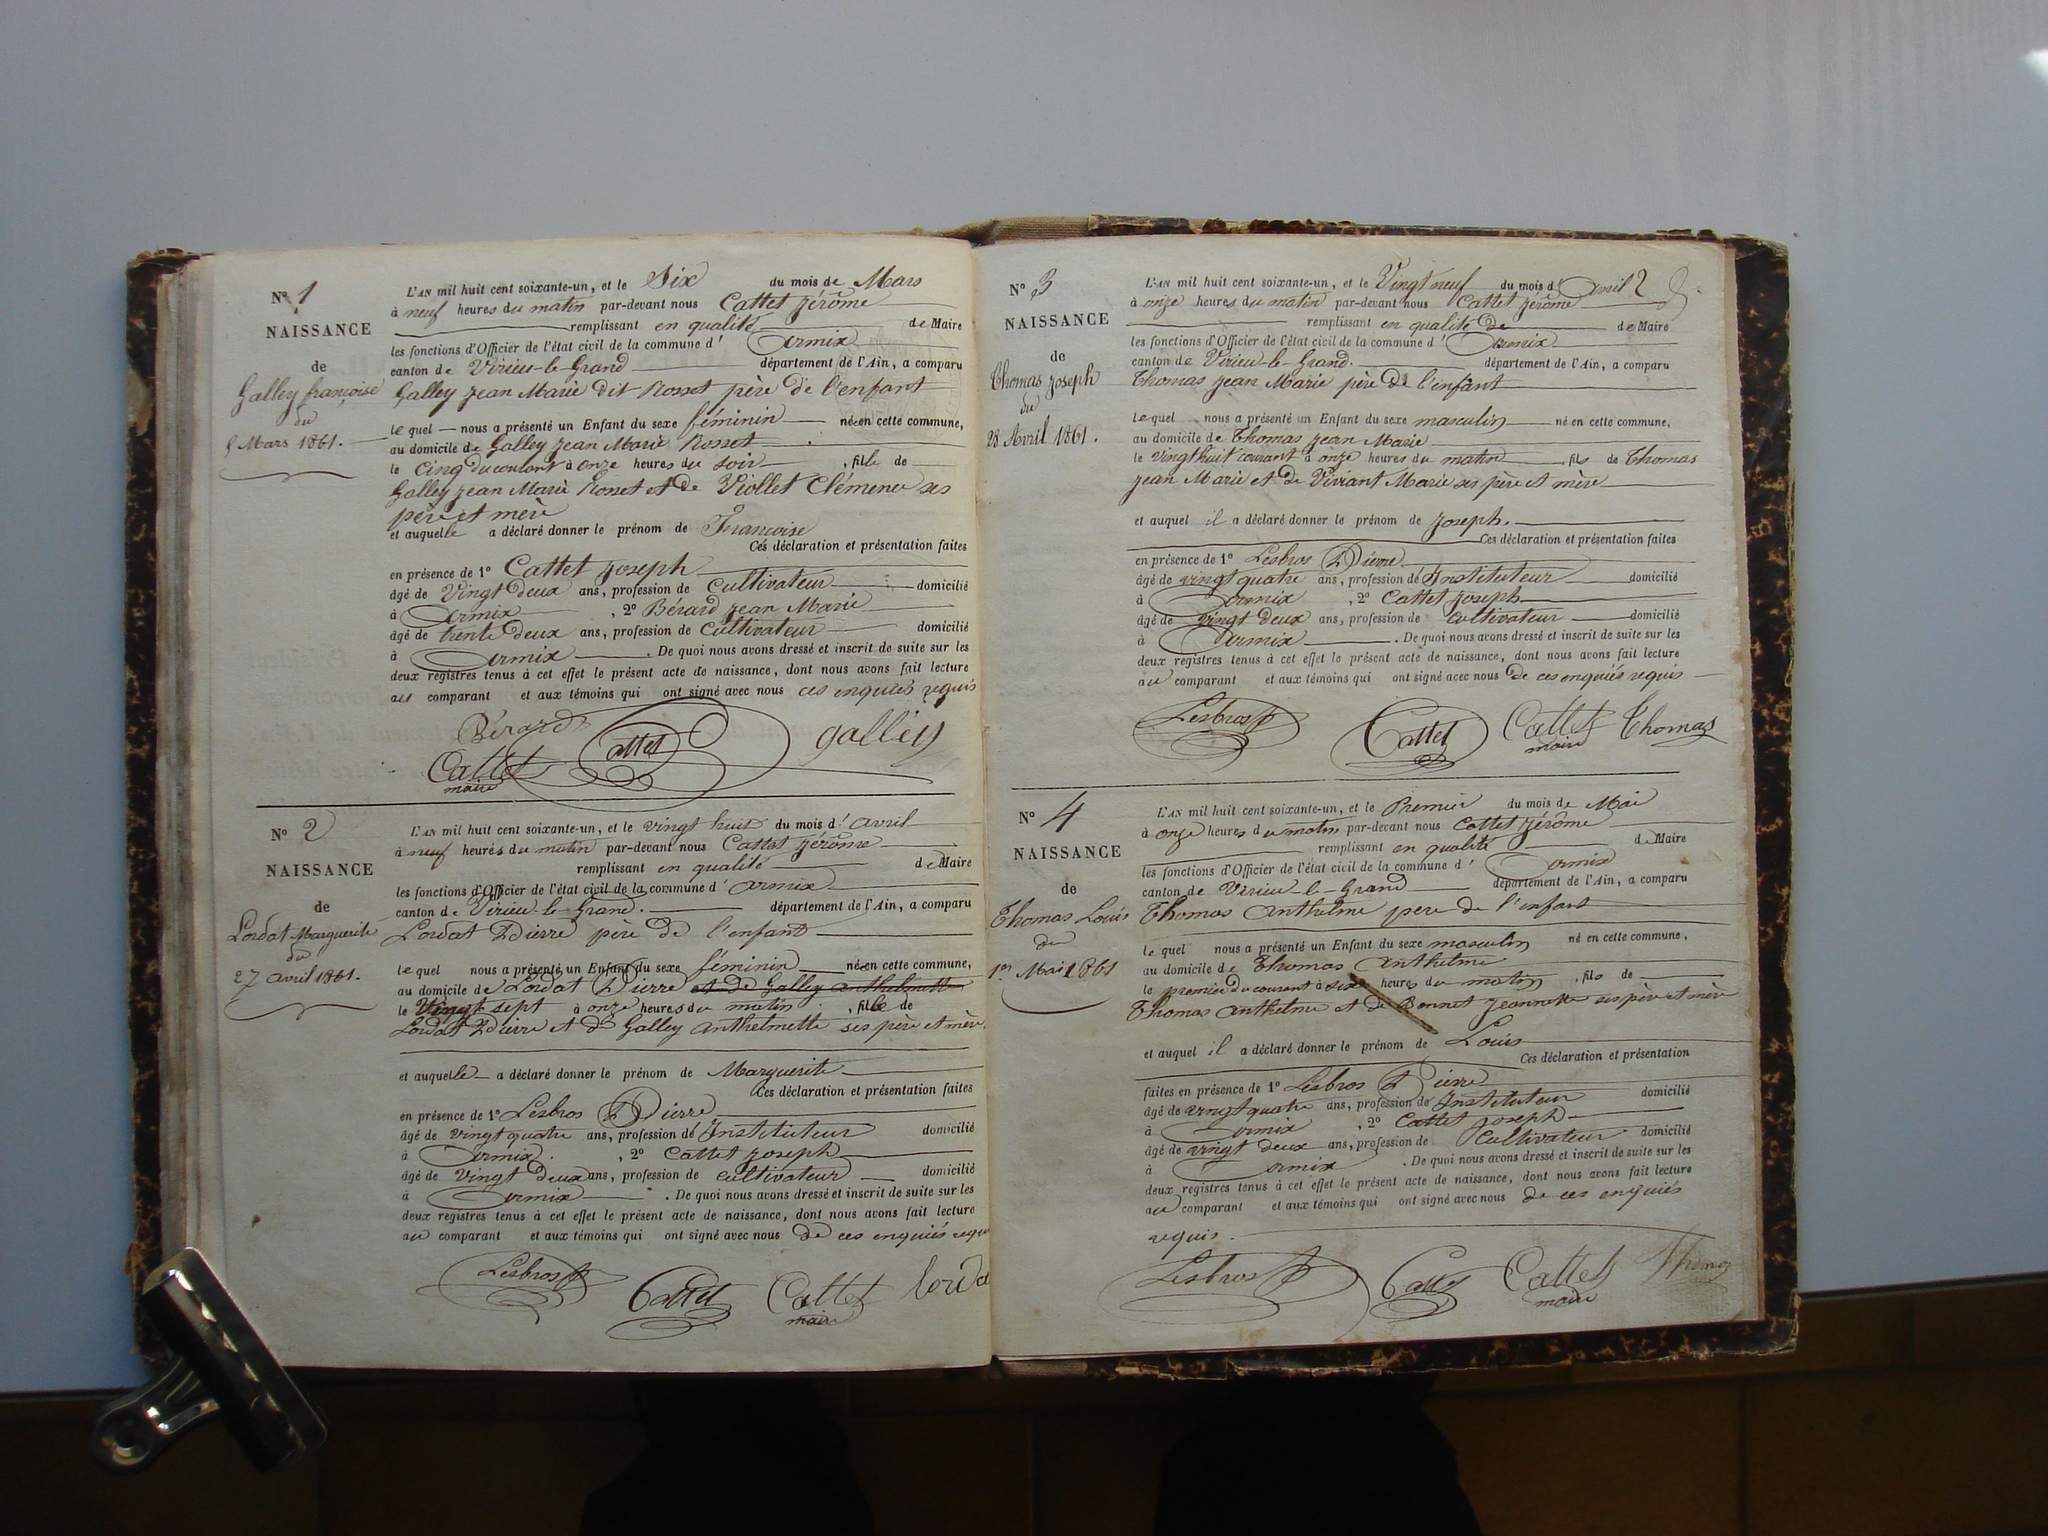 N° 1
NAISSANCE
de
Galley françoise
du
5 Mars 1861.
L'AN mil huit cent soixante-un, et le Six du mois de Mars
à neuf heures du matin par-devant nous Cattet Jérôme
remplissant en qualité de Maire
les fonctions d'Officier de l'état civil de la commune d' Armix
canton de Virieu-le-Grand département de l'Ain, a comparu
Galley Jean Marie dit Rosset père de l'enfant
lequel nous a présenté un Enfant du sexe féminin née en cette commune,
au domicile de Galley Jean Marie Rosset
le Cinq du courant à onze heures du soir, fille de
Galley Jean Marie Rosset et de Viollet Clémence ses
père et mère
et auquelle a déclaré donner le prénom de Françoise
Ces déclaration et présentation faites
en présence de 1° Cattet Joseph
âgé de Vingt deux ans, profession de Cultivateur domicilié
à Armix, 2° Bérard Jean Marie
âgé de trente deux ans, profession de Cultivateur domicilié
à Armix. De quoi nous avons dressé et inscrit de suite sur les
deux registres tenus à cet effet le présent acte de naissance, dont nous avons fait lecture
au comparant et aux témoins qui ont signé avec nous ces enquiés requis
Bérard Cattet galley
Cattet
maire
N° 2
NAISSANCE
de
Lordat Marguerite
du
27 avril 1861.
L'AN mil huit cent soixante-un, et le vingt huit du mois d' avril
à neuf heures du matin par-devant nous Cattet Jérôme
remplissant en qualité de Maire
les fonctions d'Officier de l'état civil de la commune d' armix
canton de Virieu-le-Grand. département de l'Ain, a comparu
Lordat Pierre père de l'enfant
lequel nous a présenté un Enfant du sexe féminin née en cette commune,
au domicile de Lordat Pierre et de Galley anthelmette
le Vingt sept à onze heures du matin, fille de
Lordat Pierre et de Galley anthelmette ses père et mère.
et auquelle a déclaré donner le prénom de Marguerite
Ces déclaration et présentation faites
en présence de 1° Lesbros Pierre
âgé de vingt quatre ans, profession d'Instituteur domicilié
à Armix, 2° Cattet Joseph
âgé de Vingt deux ans, profession de cultivateur domicilié
à Armix. De quoi nous avons dressé et inscrit de suite sur les
deux registres tenus à cet effet le présent acte de naissance, dont nous avons fait lecture
au comparant et aux témoins qui ont signé avec nous de ces enquiés requis
Lesbros P Cattet Cattet lorda
maire
N° 3
NAISSANCE
de
Thomas Joseph
du
28 Avril 1861.
L'AN mil huit cent soixante-un, et le Vingt neuf du mois d' Avril 2
à onze heures du matin par-devant nous Cattet Jérôme
remplissant en qualité de de Maire
les fonctions d'Officier de l'état civil de la commune d' Armix
canton de Virieu-le-Grand. département de l'Ain, a comparu
Thomas Jean Marie père de l'enfant
lequel nous a présenté un Enfant du sexe masculin né en cette commune,
au domicile de Thomas Jean Marie
le vingt huit courant à onze heures du matin fils de Thomas
Jean Marie et de Viviant Marie ses père et mère
et auquel il a déclaré donner le prénom de Joseph.
Ces déclaration et présentation faites
en présence de 1° Lesbros Pierre
âgé de vingt quatre ans, profession d'Instituteur domicilié
à Armix, 2° Cattet Joseph
âgé de vingt deux ans, profession de cultivateur domicilié
à Armix. De quoi nous avons dressé et inscrit de suite sur les
deux registres tenus à cet effet le présent acte de naissance, dont nous avons fait lecture
au comparant et aux témoins qui ont signé avec nous de ces enquiés requis
Lesbros P Cattet Cattet Thomas
maire
N° 4
NAISSANCE
de
Thomas Louis
du
1er Mai 1861
L'AN mil huit cent soixante-un, et le Premier du mois de Mai
à onze heures du matin par-devant nous Cattet Jérôme
remplissant en qualité de Maire
les fonctions d'Officier de l'état civil de la commune d' Armix
canton de Virieu-le-Grand département de l'Ain, a comparu
Thomas Anthelme père de l'enfant
lequel nous a présenté un Enfant du sexe masculin né en cette commune,
au domicile de Thomas Anthelme
le premier du courant à six heures du matin, fils de
Thomas Anthelme et de Bonnet Jeannette ses père et mère
et auquel il a déclaré donner le prénom de Louis
Ces déclaration et présentation
faites en présence de 1° Lesbros Pierre
âgé de vingt quatre ans, profession d'Instituteur domicilié
à Armix, 2° Cattet Joseph
âgé de vingt deux ans, profession de Cultivateur domicilié
à Armix. De quoi nous avons dressé et inscrit de suite sur les
deux registres tenus à cet effet le présent acte de naissance, dont nous avons fait lecture
au comparant et aux témoins qui ont signé avec nous de ces enquiés
requis.
Lesbros P Cattet Cattet Thomas
maire